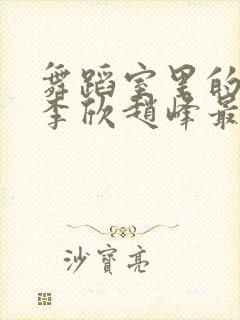 舞蹈室里的
李欣赵峰最
沙寶亮